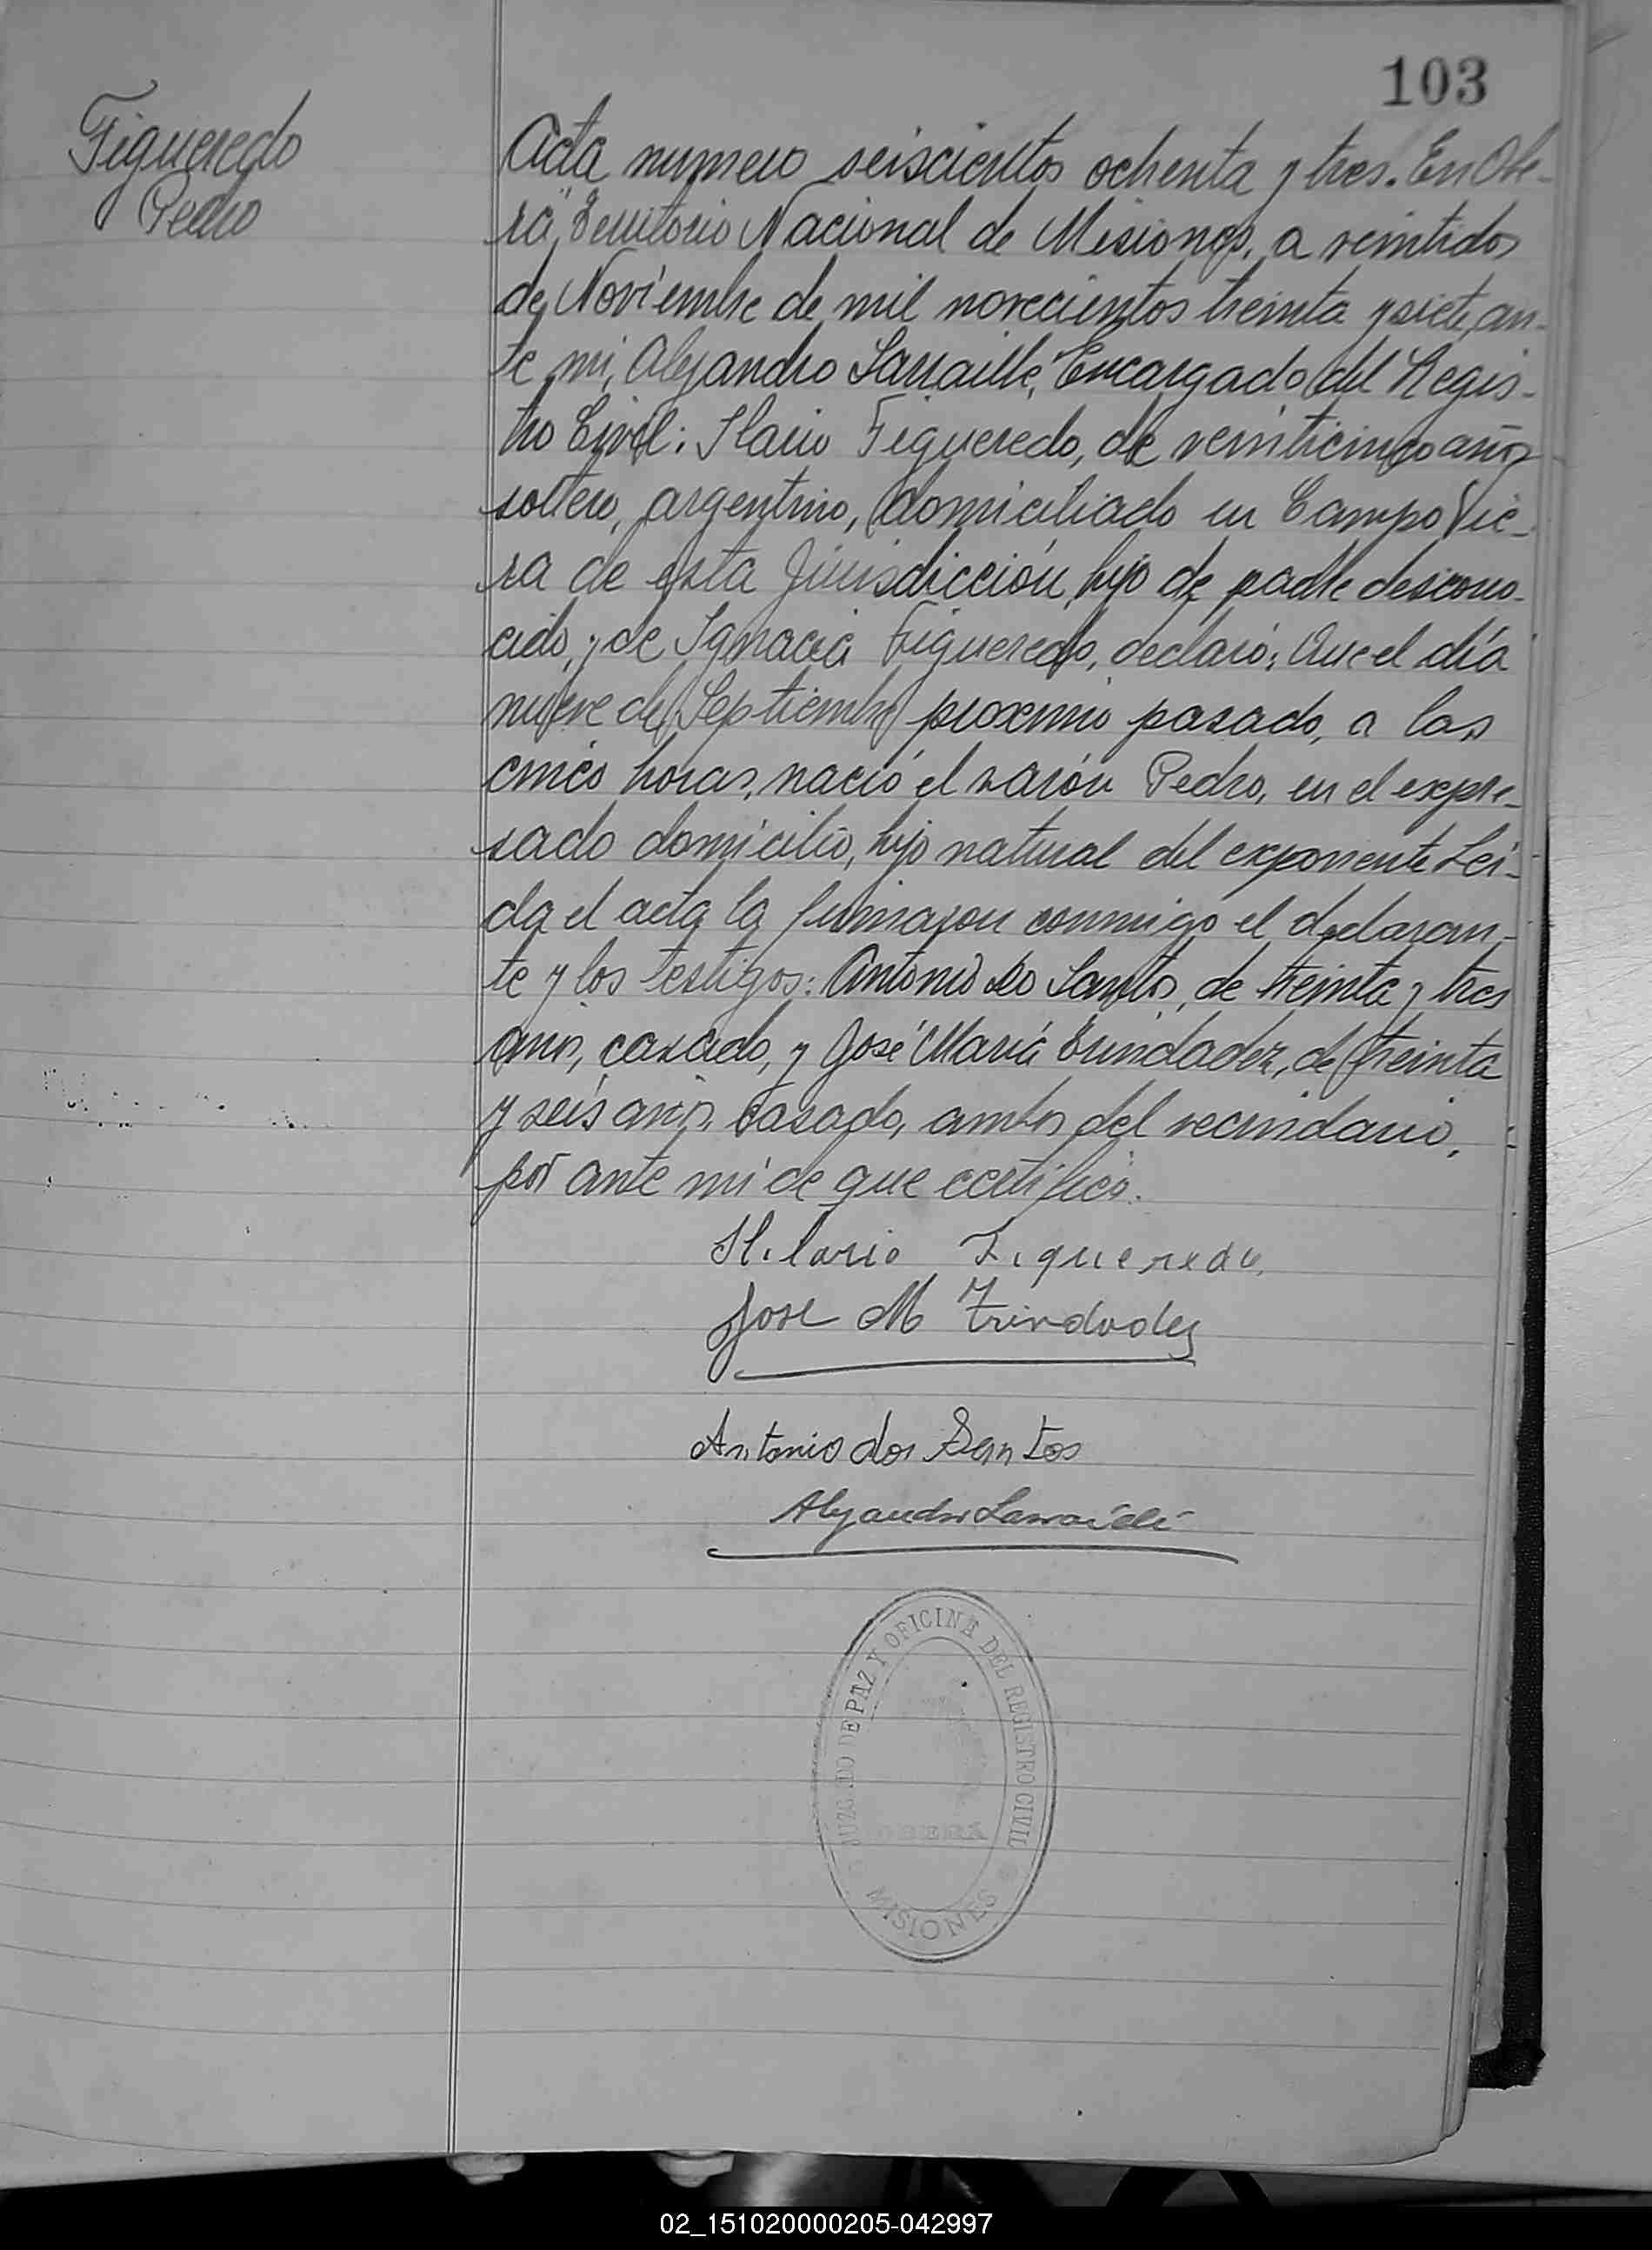 103
Figueredo
Pedro
Acta numero seiscientos ochenta y tres. En Obe-
rá, Territorio Nacional de Misiones, a veintidos
de Noviembre de mil novecientos treinta y siete, an-
te mi, Alejandro Larraillé, Encargado del Regis-
tro Civil: Ilario Figueredo, de veinticinco años
soltero, argentino, domiciliado en Campo Vie-
ra de esta Jurisdicción, hijo de padre descono-
cido, y de Ignacia Figueredo, declaró: Que el día
nueve de Septiembre proximo pasado, a las
cinco horas, nació el varón Pedro, en el expre-
sado domicilio, hijo natural del exponente. Lei-
da el acta la firmaron conmigo el declaran-
te y los testigos: Antonio do Santos, de treinta y tres
años, casado, y José María Trindadez, de treinta
y seis años, casado, ambos del vecindario,
por ante mi de que certifico.
Hilario Figueredo.
Jose M Trindadez
Antonio dos Santos
Alejandro Larraillé
JUZGADO DE PAZ Y OFICINA DEL REGISTRO CIVIL
OBERÁ
MISIONES
02_151020000205-042997